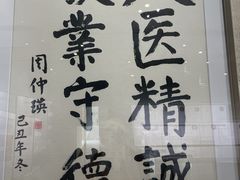 医精誠
業守德
周仲瑛
己丑年冬